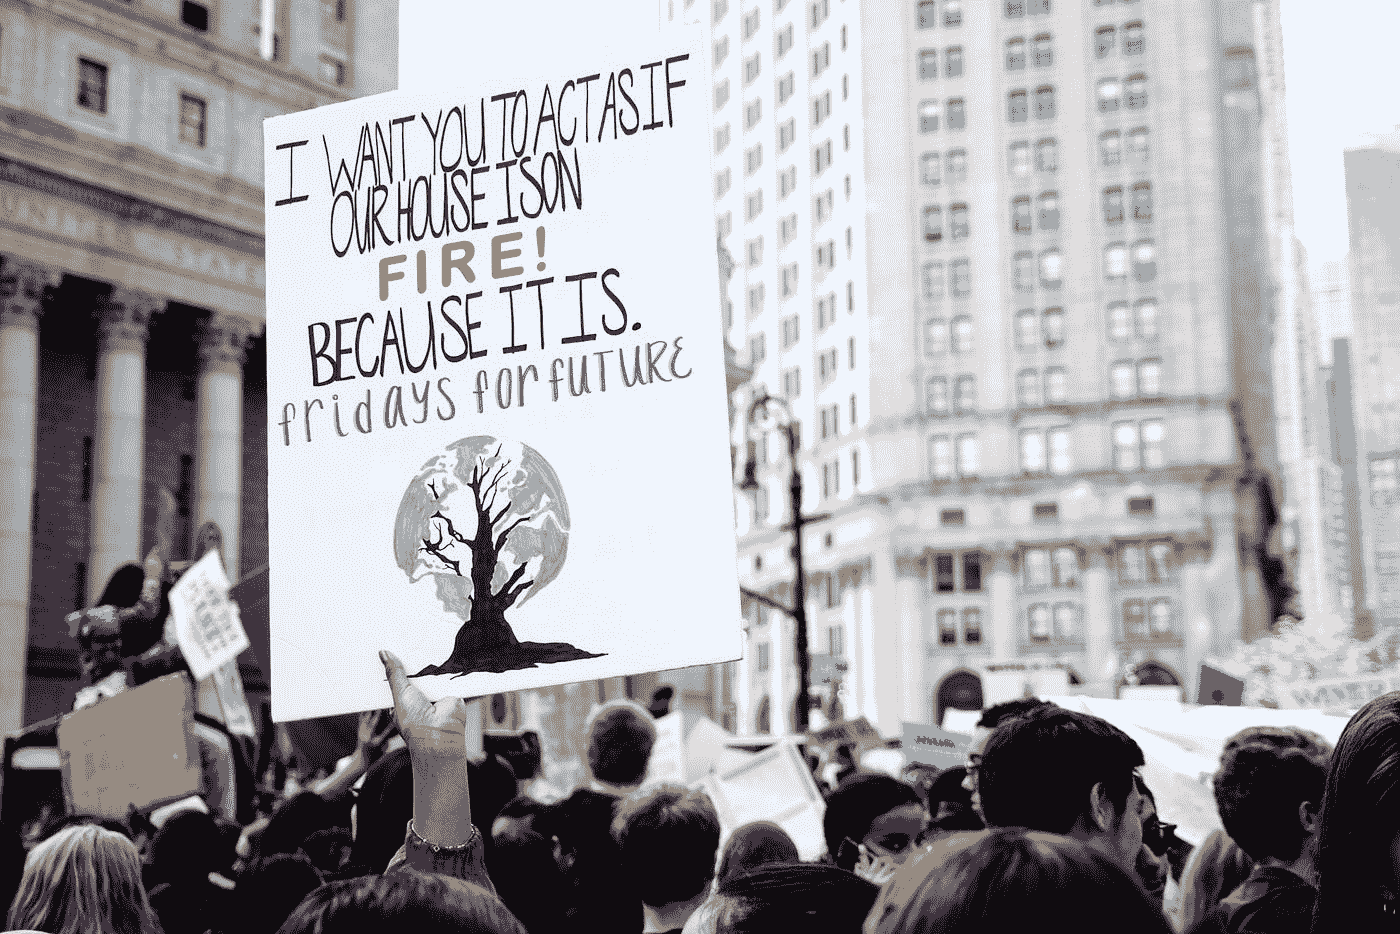 I WANT YOU TO ACT AS IF
OUR HOUSE IS ON
FIRE!
BECAUSE IT IS.
fridays for fuTURE
UNITED STATES